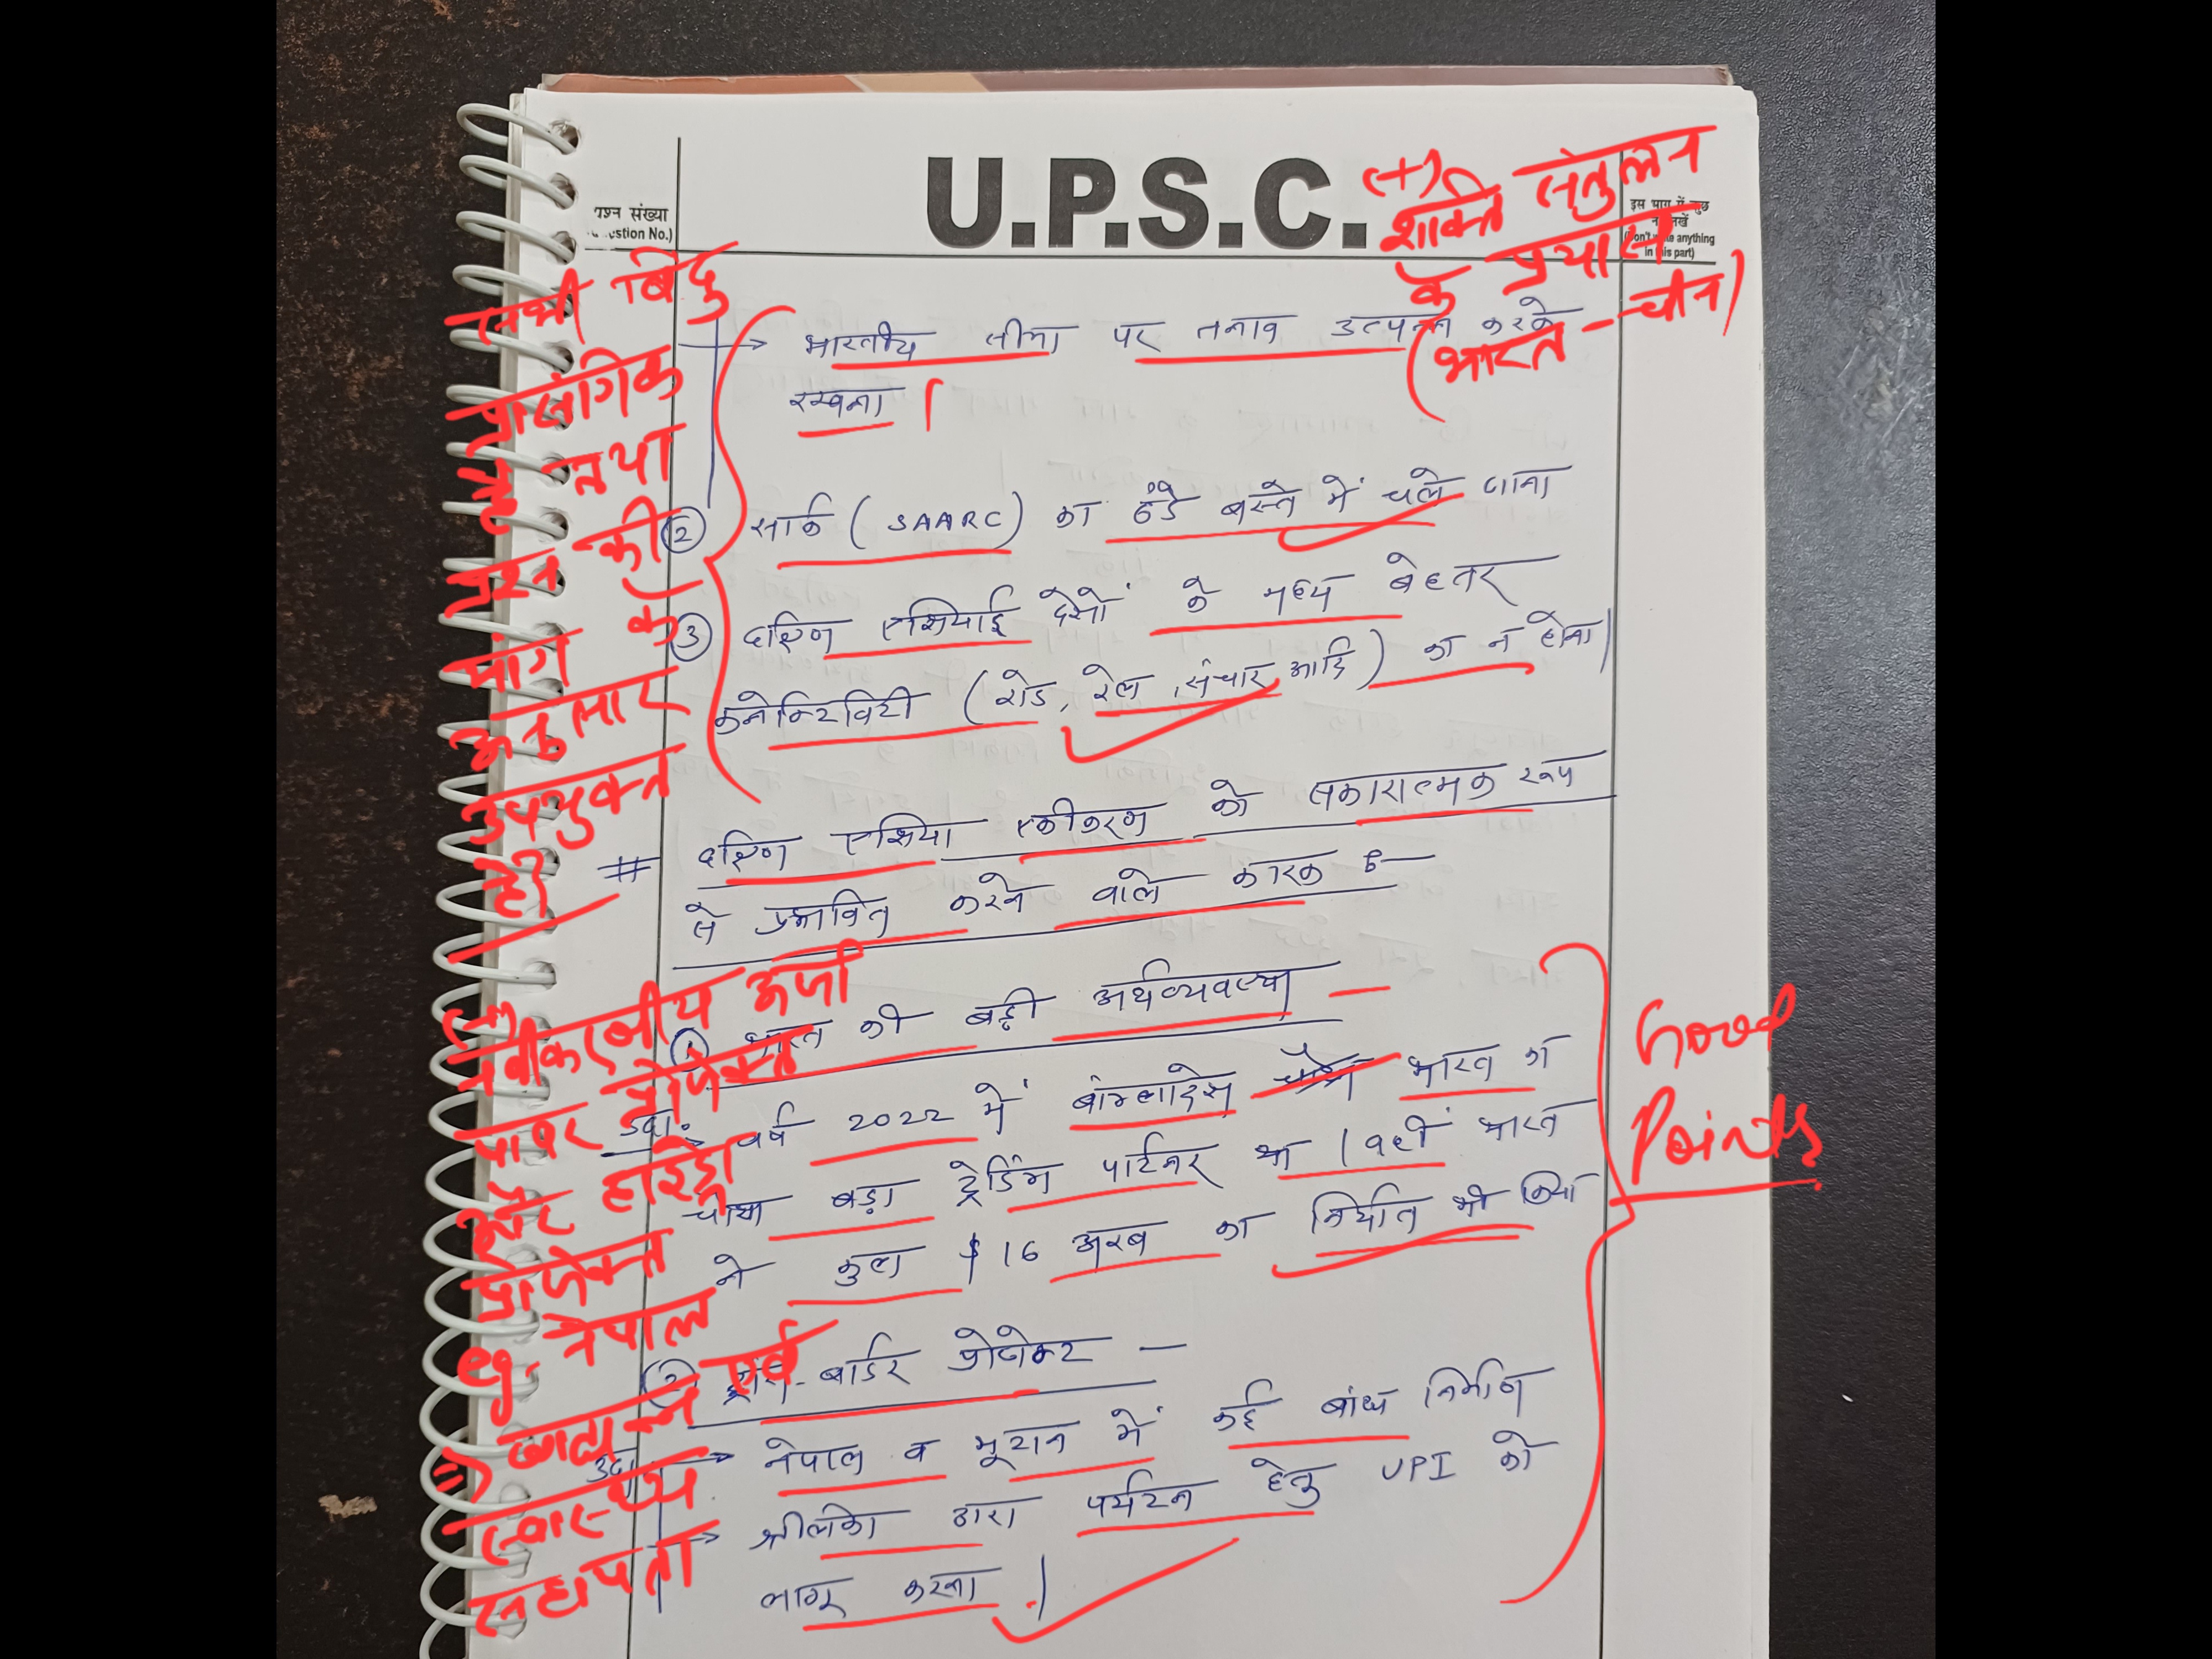 U.P.S.C.
प्रश्न संख्या
(Question No.)
इस भाग में कुछ
न लिखें
(Don't write anything
in this part)
(+)
शक्ति संतुलन
के प्रयास
(भारत-चीन)
सभी बिंदु
प्रासंगिक
है तथा
प्रश्न की
मांग के
अनुसार
उपयुक्त
है।
→ भारतीय सीमा पर तनाव उत्पन्न करके
रखना।
② सार्क (SAARC) का ठंडे बस्ते में चले जाना
③ दक्षिण एशियाई देशों के मध्य बेहतर
कनेक्टिविटी (रोड, रेल, संचार आदि) का न होना।
# दक्षिण एशिया एकीकरण को सकारात्मक रूप
से प्रभावित करने वाले कारक :-
① भारत की बड़ी अर्थव्यवस्था —
उदा: वर्ष 2022 में बांग्लादेश भारत का
चौथा बड़ा ट्रेडिंग पार्टनर था। वहीं भारत
ने कुल $16 अरब का निर्यात भी किया
② ट्रांस-बार्डर प्रोजेक्ट —
उदा → नेपाल व भूटान में कई बांध निर्माण
→ श्रीलंका द्वारा पर्यटन हेतु UPI को
लागू करना।
Good
Points
(+)
नवीकरणीय ऊर्जा
पावर प्रोजेक्ट
और हाइड्रो
प्रोजेक्ट
eg. नेपाल
⇒ एवं
स्वास्थ्य
सहायता